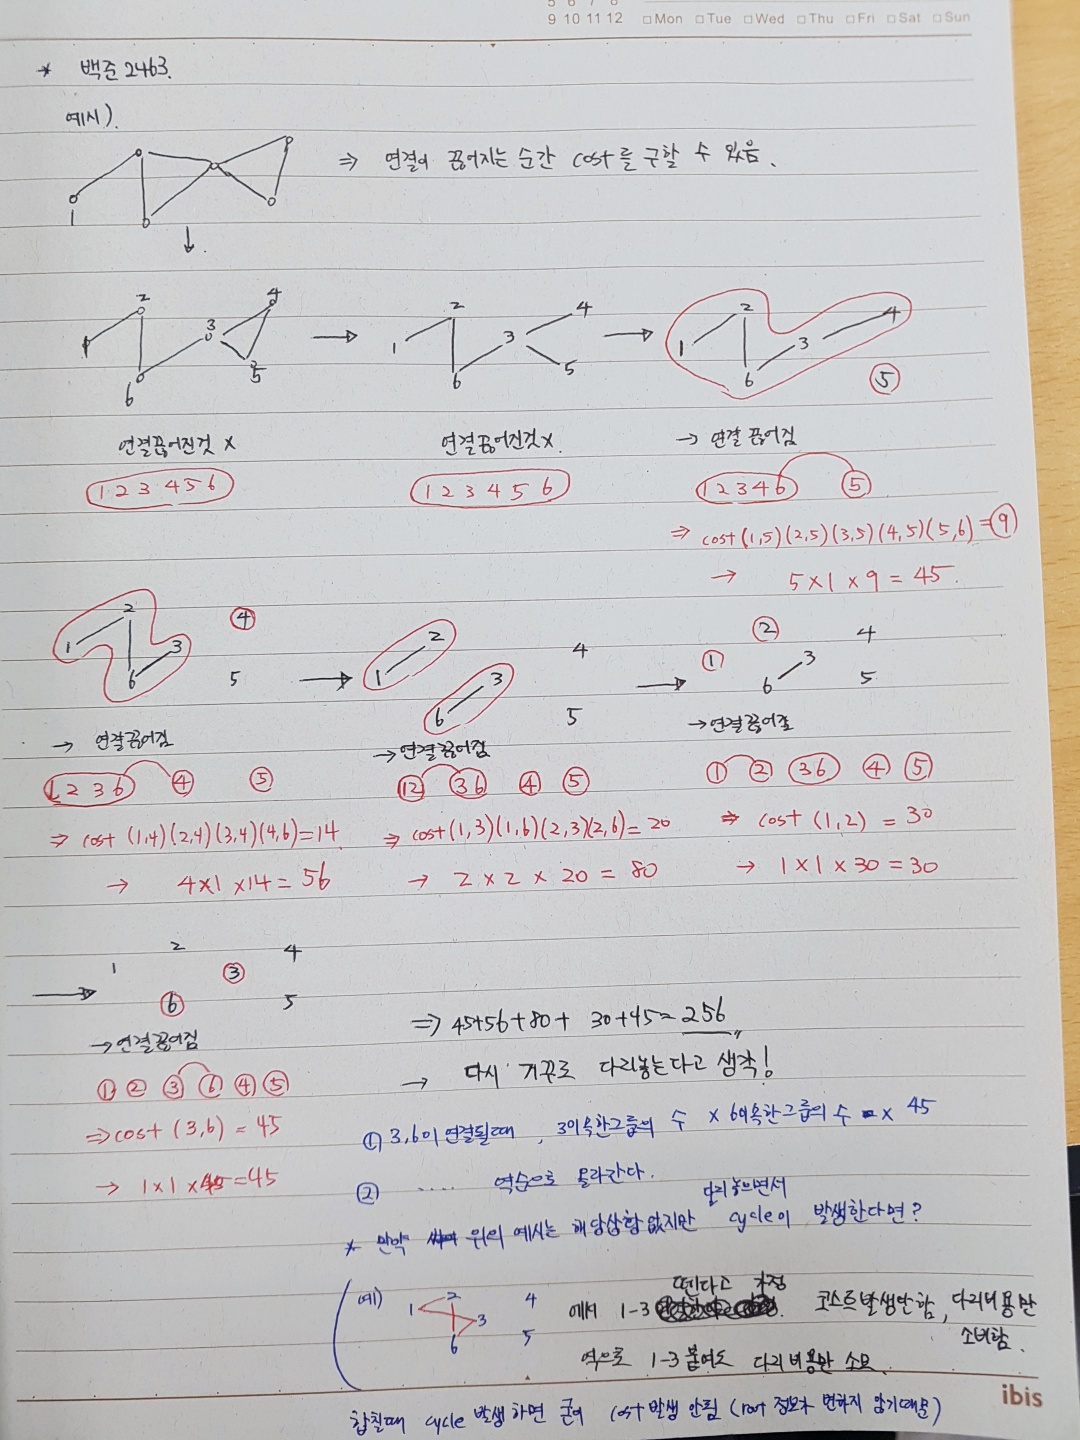 5 6 7 8
9 10 11 12 □Mon □Tue □Wed □Thu □Fri □Sat □Sun
* 백준 2463.
예시).
⇒ 연결이 끊어지는 순간 cost를 구할 수 있음.
1
↓.
2 3 4 1 5 6 → 2 4 1 3 6 5 → 2 4 1 3 6 ⑤
연결끊어진것 x
연결끊어진것 x.
→ 연결 끊어짐
1 2 3 4 5 6
1 2 3 4 5 6
1 2 3 4 6 ⑤
⇒ cost (1,5)(2,5)(3,5)(4,5)(5,6)=⑨
→ 5×1×9=45.
2 ④ 1 3 6 5 → 2 4 1 3 6 5 → ② 4 ① 3 6 5
→ 연결끊어짐
→연결끊어짐
→연결끊어짐
1 2 3 6 ④ ⑤
12 36 ④ ⑤
① ② 36 ④ ⑤
⇒ cost (1,4)(2,4)(3,4)(4,6)=14
⇒ cost(1,3)(1,6)(2,3)(2,6)=20
⇒ cost (1,2) = 30
→ 4×1×14=56
→ 2×2×20=80
→ 1×1×30=30
→ 1 2 4 ③ ⑥ 5
→연결끊어짐
⇒ 45+56+80+ 30+45=256"
① ② ③ ⑥ ④ ⑤
→ 다시 거꾸로 다리놓는다고 생각!
⇒cost (3,6) = 45
① 3,6이 연결될때, 3이속한그룹의 수 × 6이속한그룹의 수 × 45
→ 1×1×45=45
② .... 역순으로 올라간다.
다리놓으면서
* 만약 위의 예시는 해당상황없지만 cycle이 발생한다면?
예) 1 2 3 6 4 5
뗀다고 가정
에서 1-3 코스트발생안함, 다리비용만
소비함.
역으로 1-3 붙여도 다리비용만 소모.
합칠때 cycle 발생하면 굳이 cost발생 안됨 (root 정보가 변하지 않기때문)
ibis